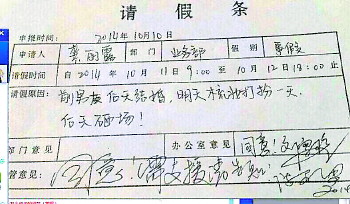 请假条
申报时间: 2014年10月10日
申请人 龚丽露 部门 业务部 假别 事假
请假时间 自2014年10月11日9:00至10月12日18:00止
请假原因: 前男友后天结婚,明天梳洗打扮一天,
后天砸场!
部门意见 办公室意见 同意!
管意见: 同意!需支援请告知!
2014